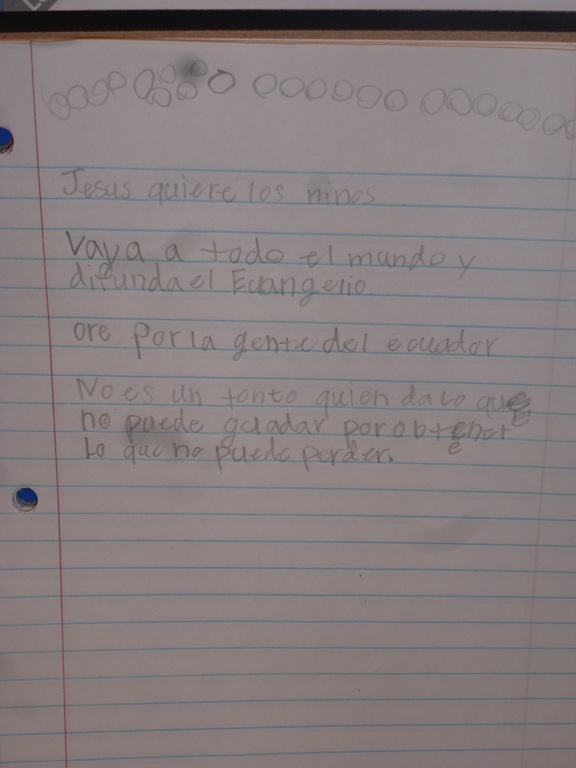 Jesus quiere los ninos
Vaya a todo el mundo y
difunda el Evangelio
ore por la gente del ecuador
No es un tonto quien da lo que
no puede guadar por obtener
Lo que no puede perder.